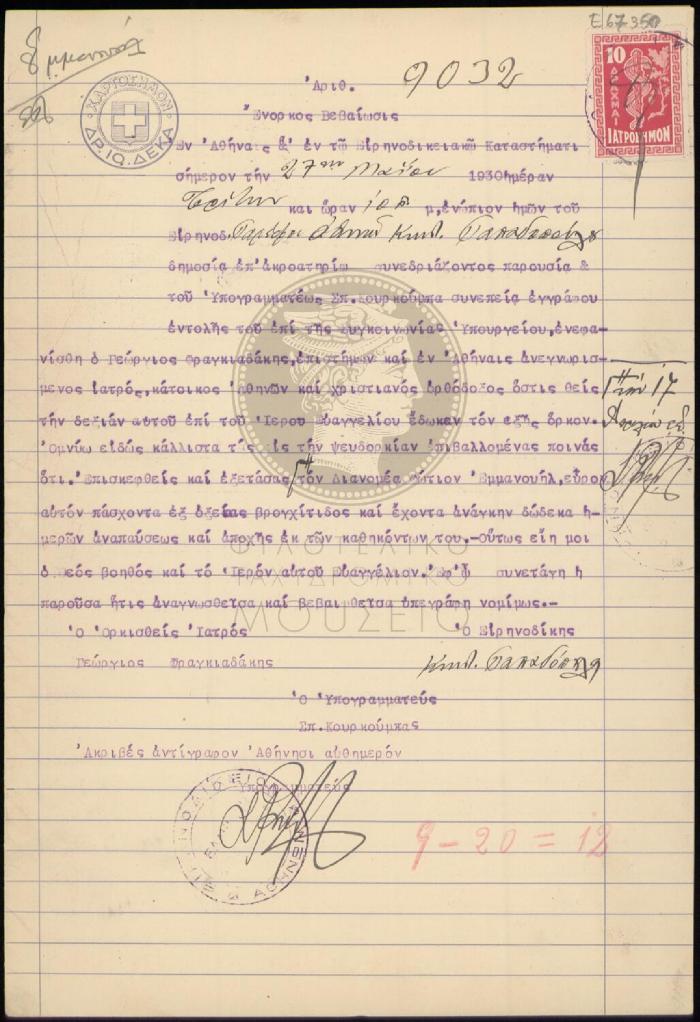 Ε 67350
ΧΑΡΤΟΣΗΜΟΝ
ΔΡ.ΙΩ.ΔΕΚΑ
10
ΔΡΑΧΜΑΙ
ΙΑΤΡΟΣΗΜΟΝ
Ἀριθ. 9032
Ἔνορκος Βεβαίωσις
Ἐν Ἀθήναις & ἐν τῶ Εἰρηνοδικειακῶ Καταστήματι
σήμερον τήν 27ην Μαΐου 1930 ἡμέραν
Τρίτην καί ὥραν 10 π μ, ἐνώπιον ἡμῶν τοῦ
Εἰρηνοδ. Ἀθηνῶν Κωνστ. Παπαδοπούλου
δημοσία ἐπ'ἀκροατηρίω συνεδριάζοντος παρουσία &
τοῦ Ὑπογραμματέως Σπ.Κουρκούμπα συνεπεία ἐγγράφου
ἐντολῆς τοῦ ἐπί τῆς Συγκοινωνίας Ὑπουργείου, ἐνεφα-
νίσθη ὁ Γεώργιος Φραγκιαδάκης, ἐπιστήμων καί ἐν Ἀθήναις ἀνεγνωρισ-
μενος ἰατρός, κάτοικος Ἀθηνῶν καί χριστιανός ὀρθόδοξος ὅστις θείς
τήν δεξιάν αὐτοῦ ἐπί τοῦ Ἱεροῦ Εὐαγγελίου ἔδωκεν τόν ἑξῆς ὅρκον.
Ὀμνύω εἰδώς κάλλιστα τάς εἰς τήν ψευδορκίαν ἐπιβαλλομένας ποινάς
ὅτι. Ἐπισκεφθείς καί ἐξετάσας τόν Διανομέα Φώτιον Ἐμμανουήλ, εὗρον
αὐτόν πάσχοντα ἐξ ὀξείας βρογχίτιδος καί ἔχοντα ἀνάγκην δώδεκα ἡ-
μερῶν ἀναπαύσεως καί ἀποχῆς ἐκ τῶν καθηκόντων του.-Οὕτως εἴη μοι
ὁ Θεός βοηθός καί τό Ἱερόν αὐτοῦ Εὐαγγέλιον. Ἐφ'ᾧ συνετάγη ἡ
παροῦσα ἥτις ἀναγνωσθεῖσα καί βεβαιωθεῖσα ὑπεγράφη νομίμως.-
Ὁ Ὁρκισθείς Ἰατρός Ὁ Εἰρηνοδίκης
Γεώργιος Φραγκιαδάκης Κωνστ. Παπαδόπουλος
Ὁ Ὑπογραμματεύς
Σπ.Κουρκούμπας
Ἀκριβές ἀντίγραφον Ἀθήνησι αὐθημερόν
Ὑπογραμματεύς
9 - 20 = 12
ΦΙΛΟΤΕΛΙΚΟ
ΤΑΧΥΔΡΟΜΙΚΟ
ΜΟΥΣΕΙΟ